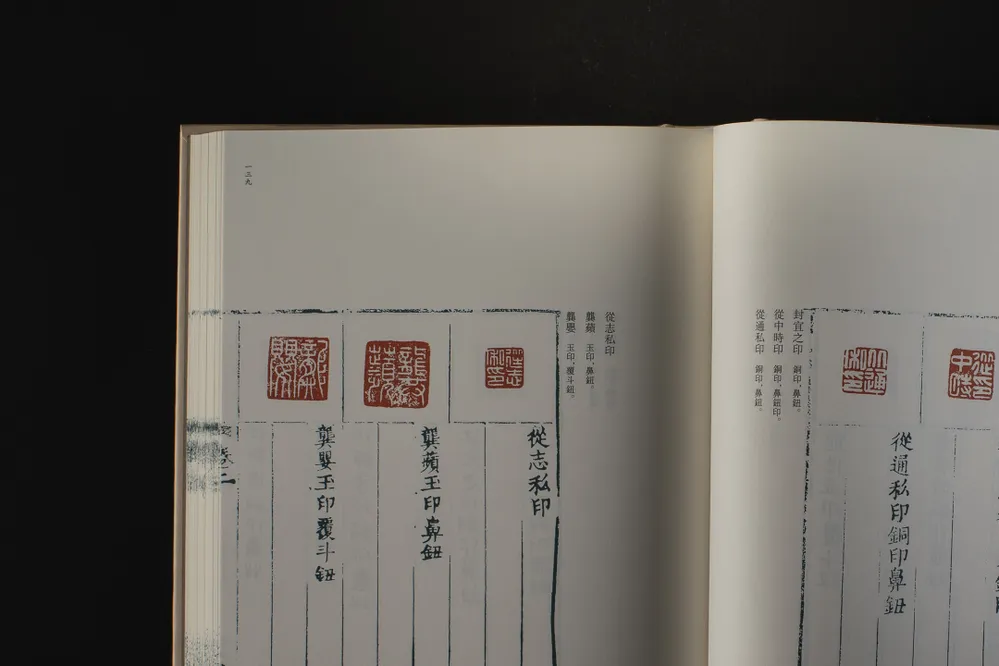 從通私印銅印鼻鈕
封宜之印 銅印,鼻鈕。
從中時印 銅印,鼻鈕印。
從通私印 銅印,鼻鈕。
從志私印
龔蘋 玉印,鼻鈕。
龔嬰 玉印,覆斗鈕。
從志私印
龔蘋玉印鼻鈕
龔嬰玉印覆斗鈕
卷二
一三九